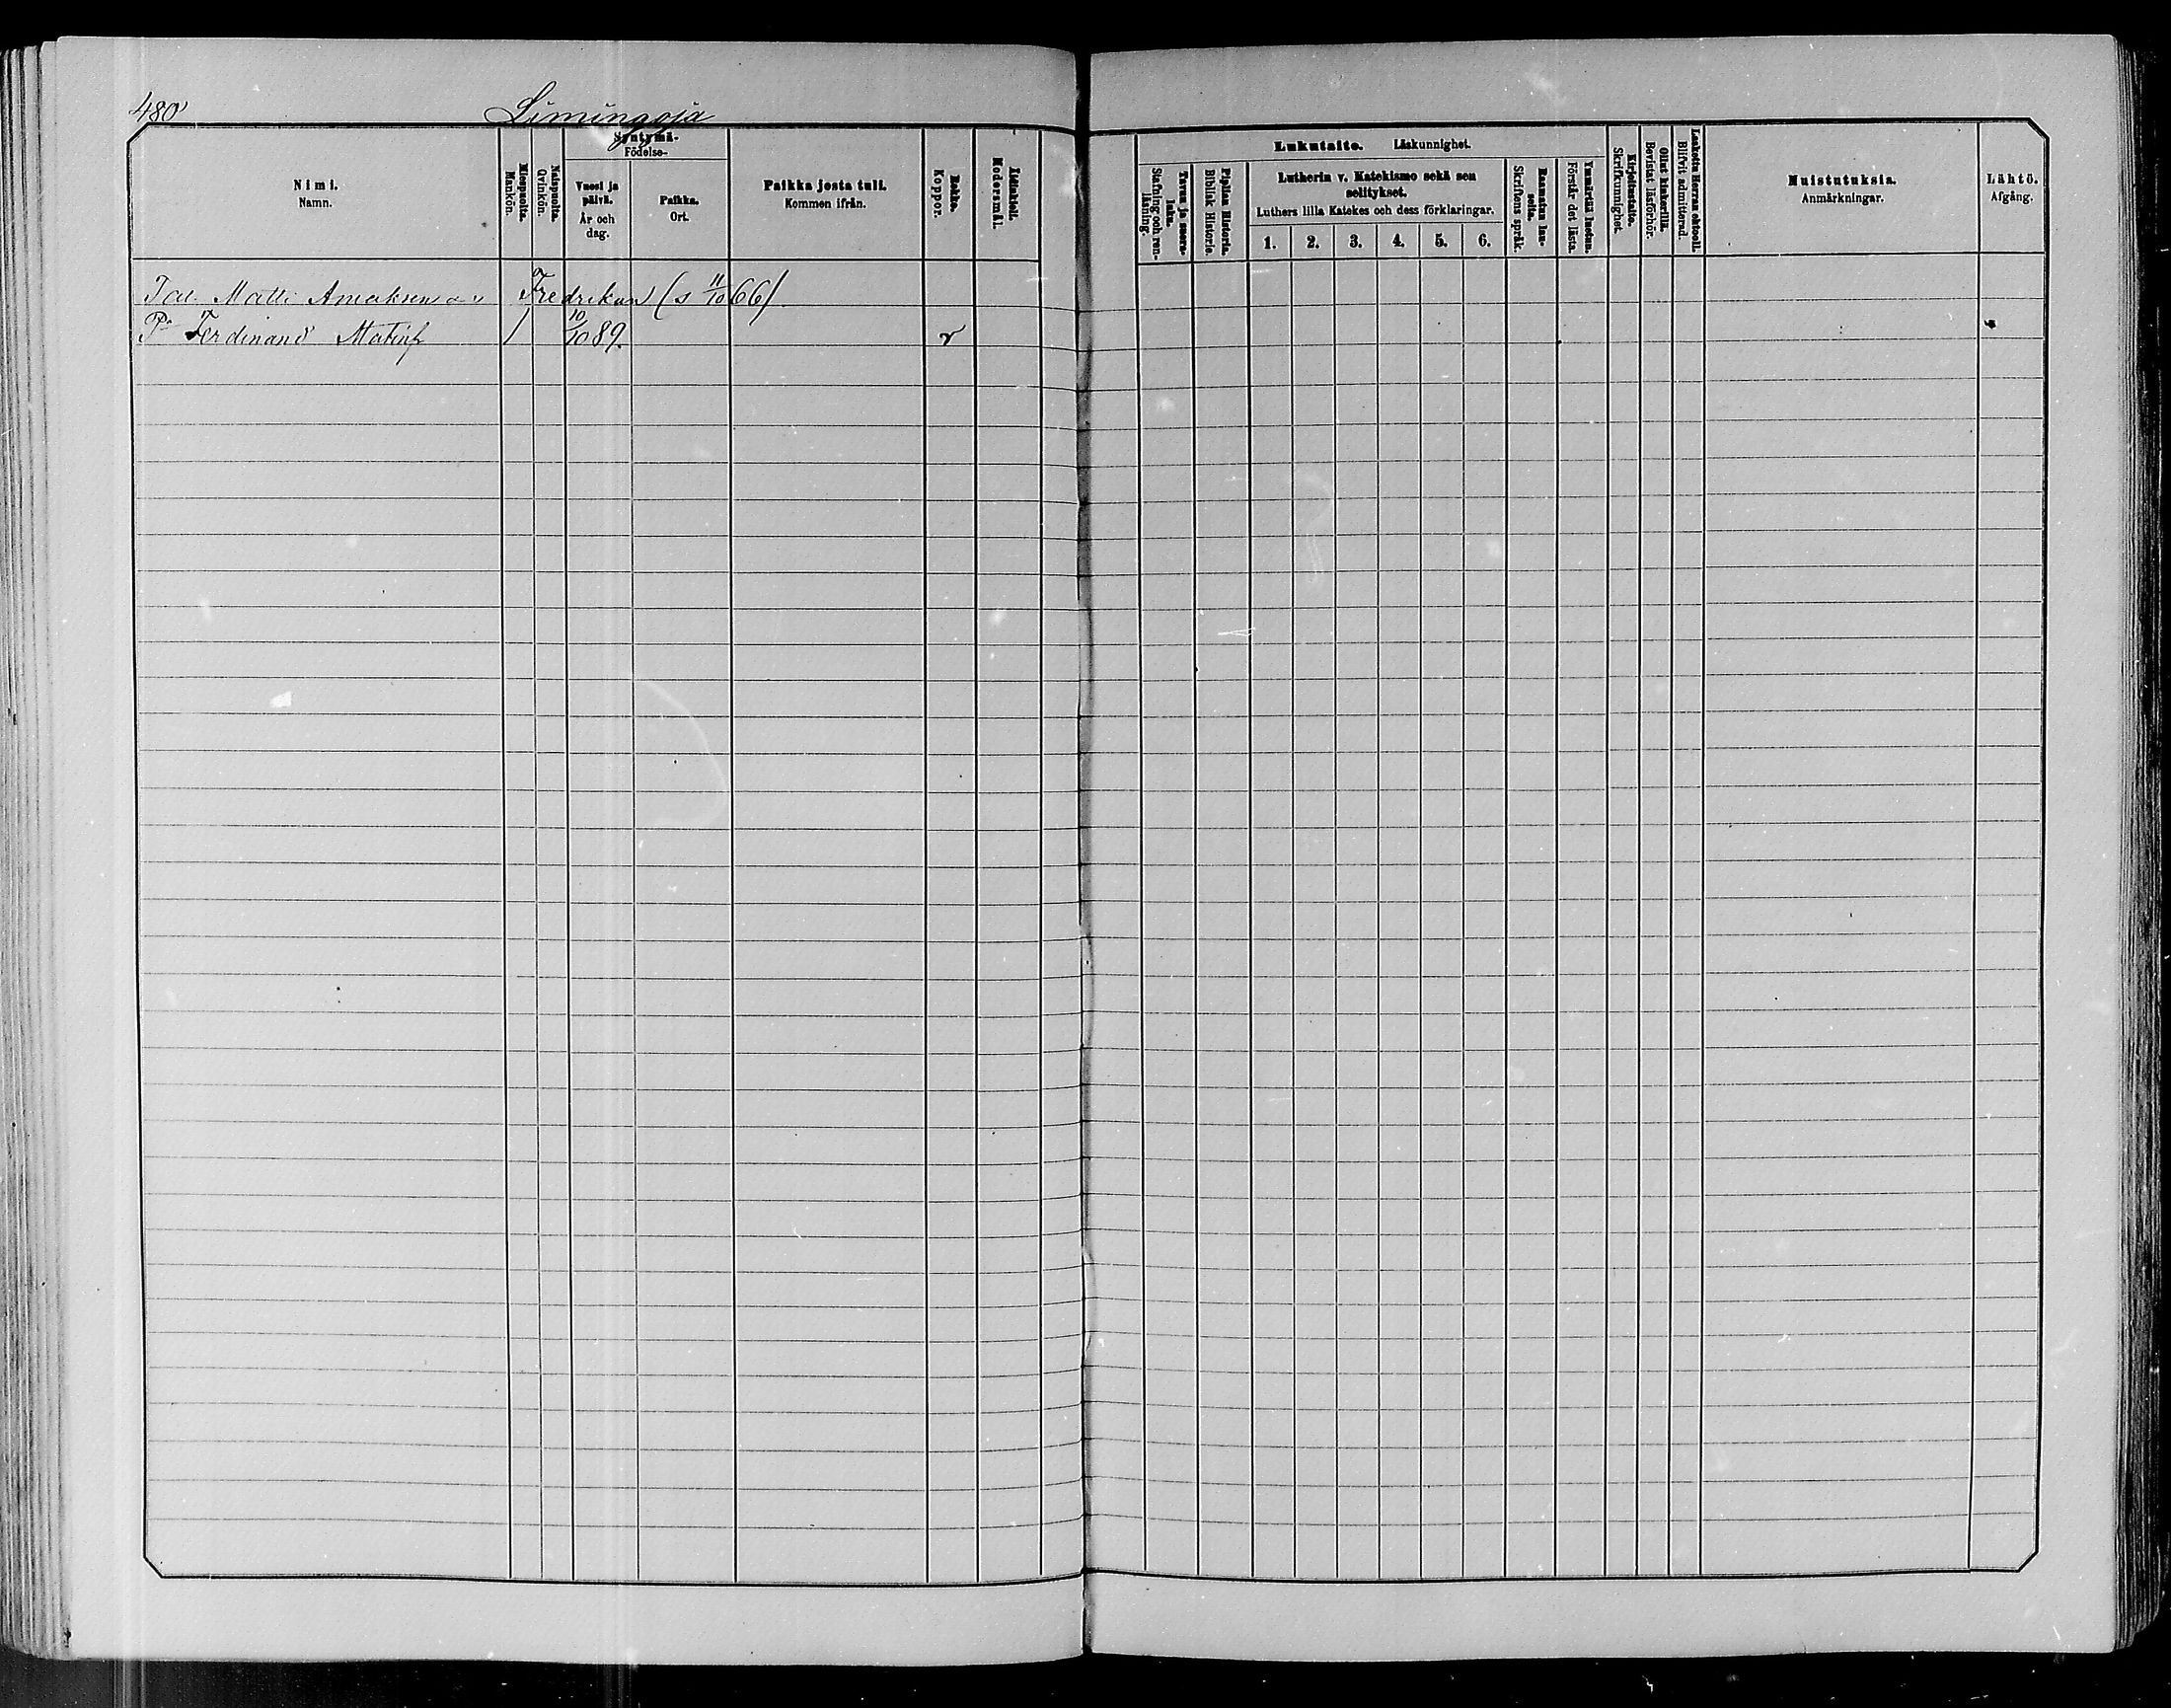 480
Limingoja
Nimi.
Namn.
Miespuolta.
Mankön.
Naispuolta.
Qvinkön.
Syntymä-
Födelse-
Vuosi ja
päivä.
År och
dag.
Paikka.
Ort.
Paikka josta tuli.
Kommen ifrån.
Rokko.
Koppor.
Äidinkieli.
Modersmål.
Matti Fredrikan (s 11/10 66)
Pa Ferdinand Matinp 1 10/10 89. r
Lukutaito. Läskunnighet.
Tavuu ja suora-
luku.
Stafning och ren-
läsning.
Piplian Historia.
Biblisk Historie.
Lutherin v. Katekismo sekä sen
selitykset.
Luthers lilla Katekes och dess förklaringar.
1. 2. 3. 4. 5. 6.
Raamatun lau-
seita.
Skriftens språk.
Ymmärtää luetun.
Förstår det lästa.
Kirjoitustaito.
Skrifkunnighet.
Ollut kinkerillä.
Bevistat läsförhör.
Laskettu Herran ehtoolle.
Blifvit admitterad.
Muistutuksia.
Anmärkningar.
Lähtö.
Afgång.